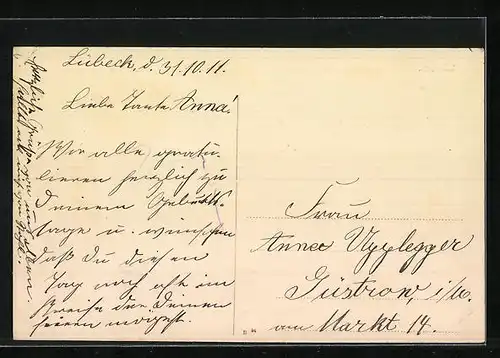 Lübeck, d. 31.10.11.
Liebe Tante Anna!
Wir alle gratu-
lieren herzlich zu
Deinem Geburts-
tage u. wünschen
daß Du diesen
Tag noch oft im
Kreise der Deinen
feiern mögest.
Herzliche Grüße
Frau
Anna
Güstrow, i/M.
am Markt 14.